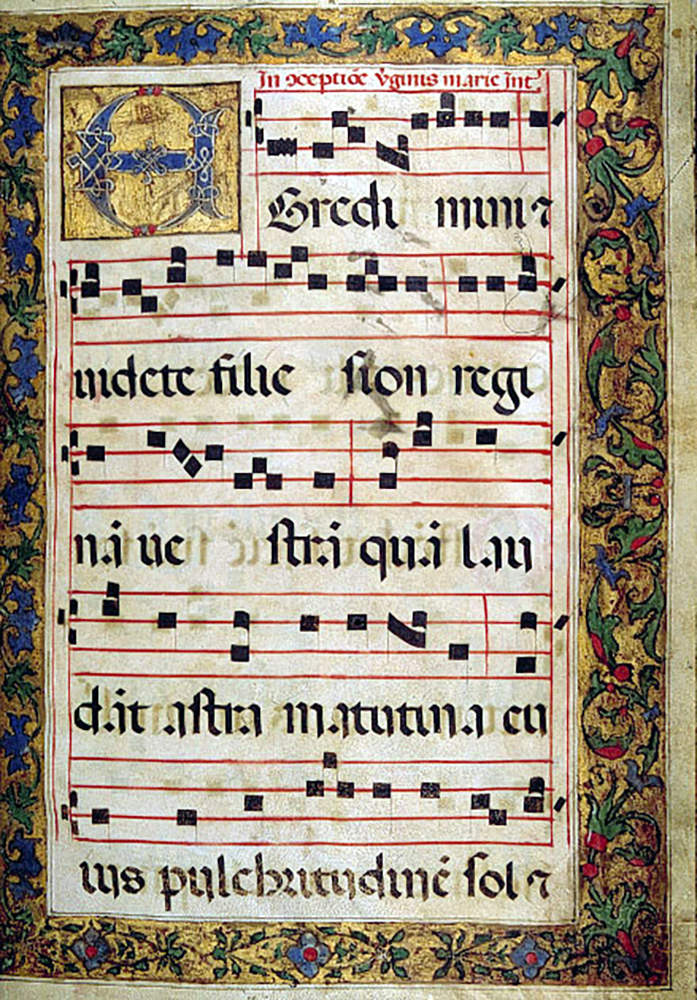 In ↄceptiōe v̄ginis marie Int̄
EGredi mini ⁊
uidete filie sion regi
nā ue strā quā lau
dāt astra matutina cu
ius pulchritudinē sol ⁊